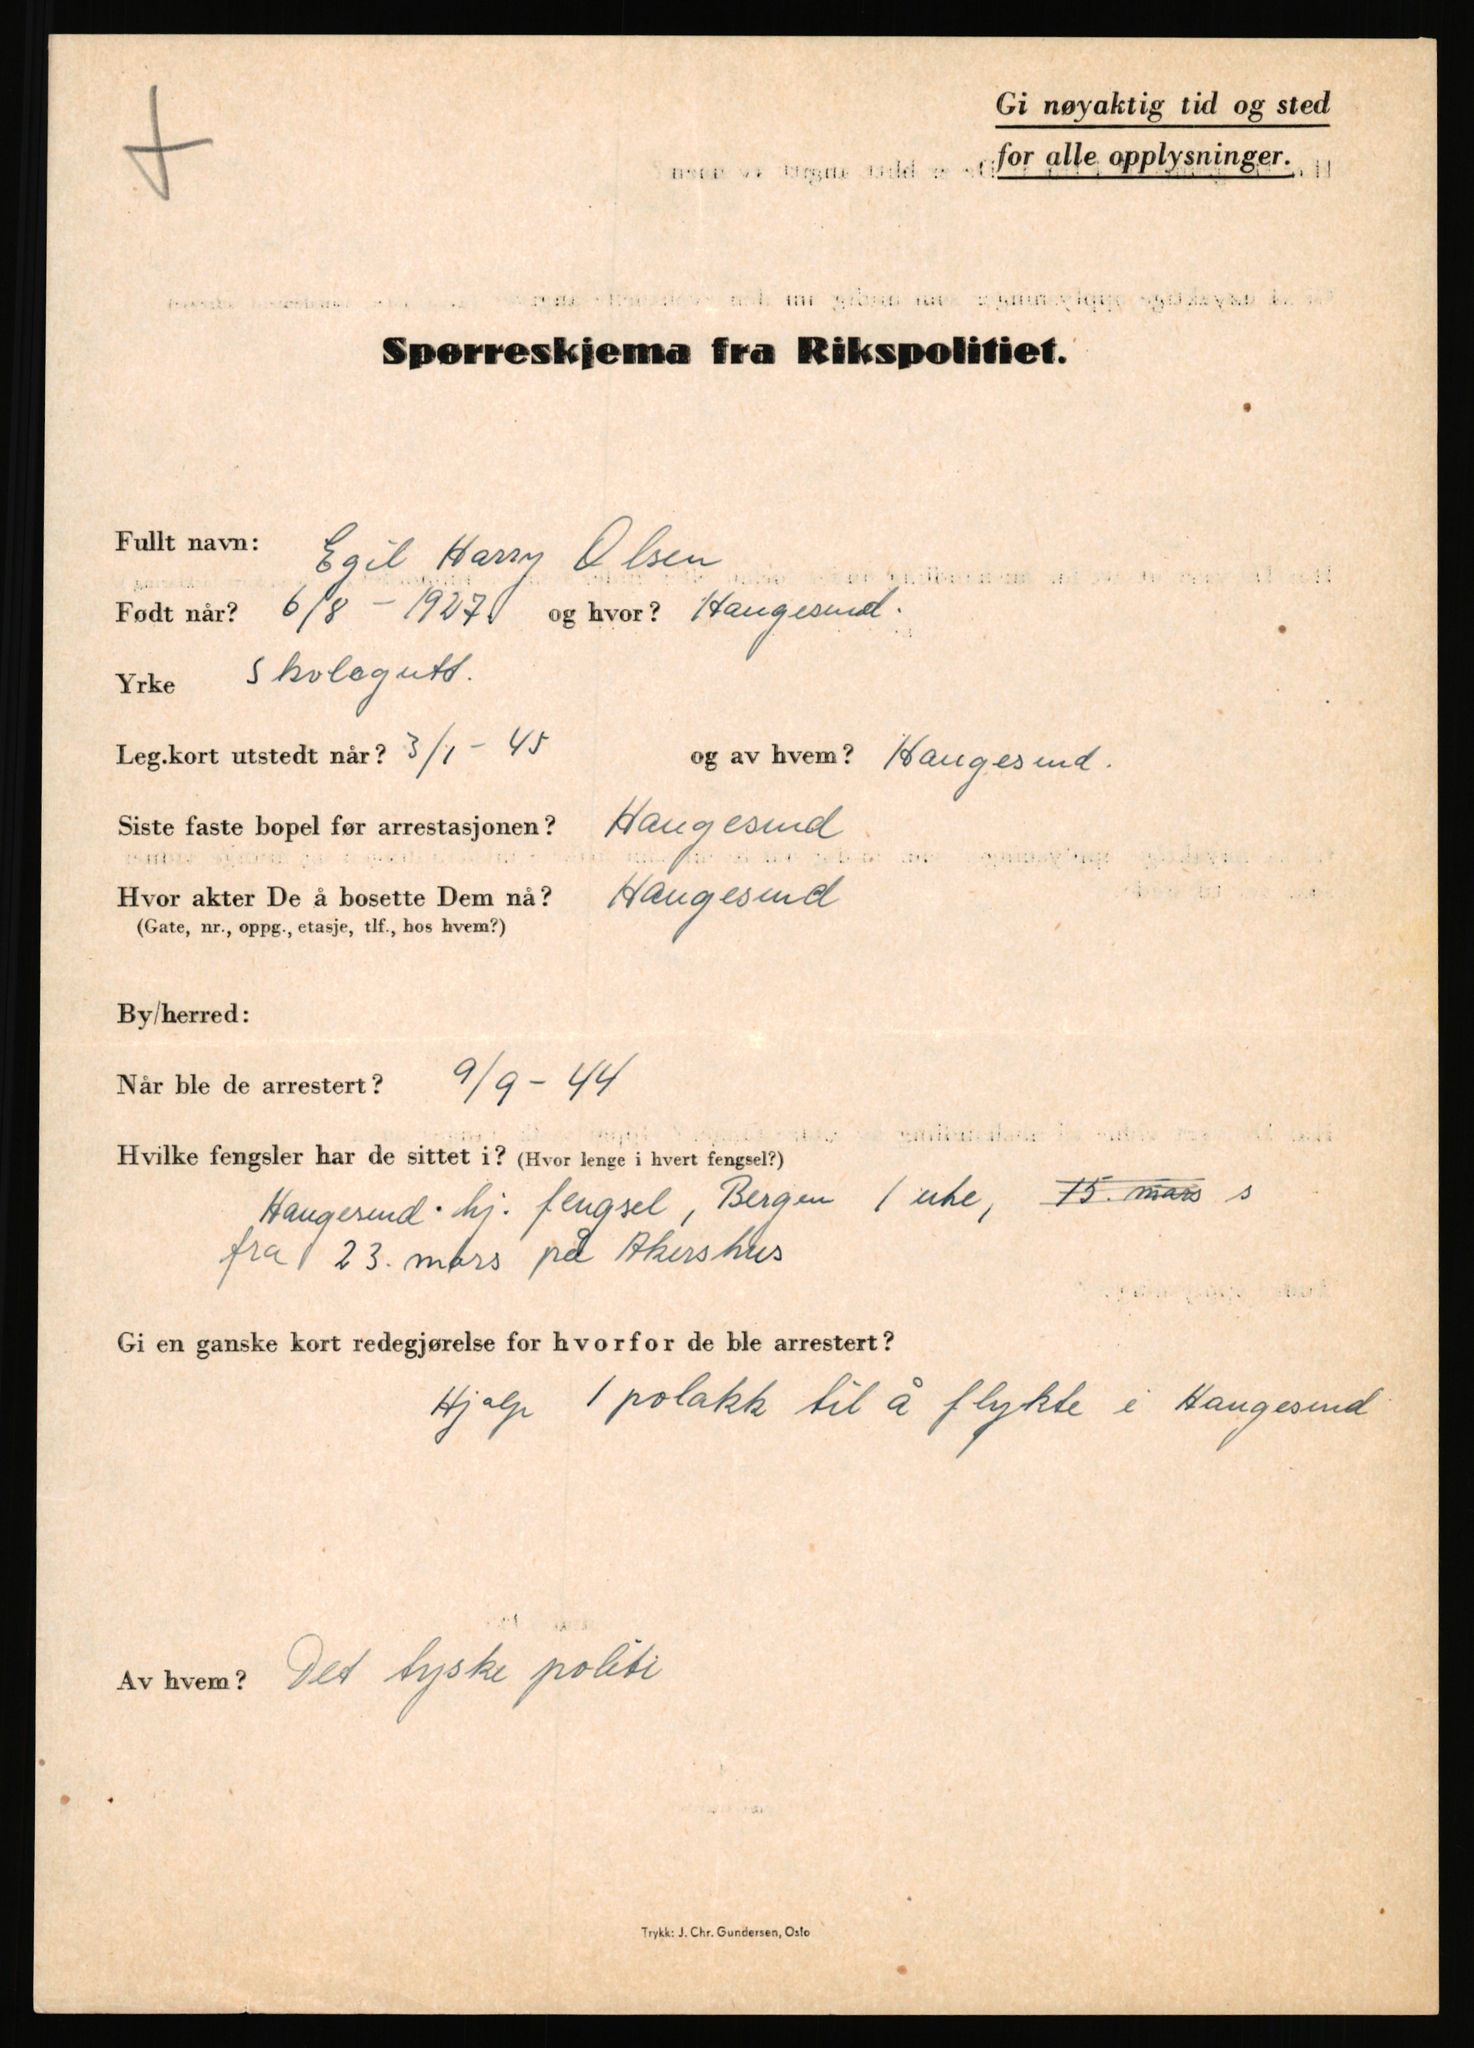 Gi nøyaktig tid og sted
for alle opplysninger.
Spørreskjema fra Rikspolitiet.
Fullt navn: Egil Harry Olsen
Født når? 6/8 - 1927. og hvor? Haugesund.
Yrke Skolegutt.
Leg.kort utstedt når? 3/1 - 45 og av hvem? Haugesund.
Siste faste bopel før arrestasjonen? Haugesund
Hvor akter De å bosette Dem nå? Haugesund
(Gate, nr., oppg., etasje, tlf., hos hvem?)
By/herred:
Når ble de arrestert? 9/9 - 44
Hvilke fengsler har de sittet i? (Hvor lenge i hvert fengsel?)
Haugesund hj. fengsel, Bergen 1 uke, 15. mars s
fra 23. mars på Akershus
Gi en ganske kort redegjørelse for hvorfor de ble arrestert?
Hjalp 1 polakk til å flykte i Haugesund
Av hvem? Det tyske politi
Trykk: J. Chr. Gundersen, Oslo